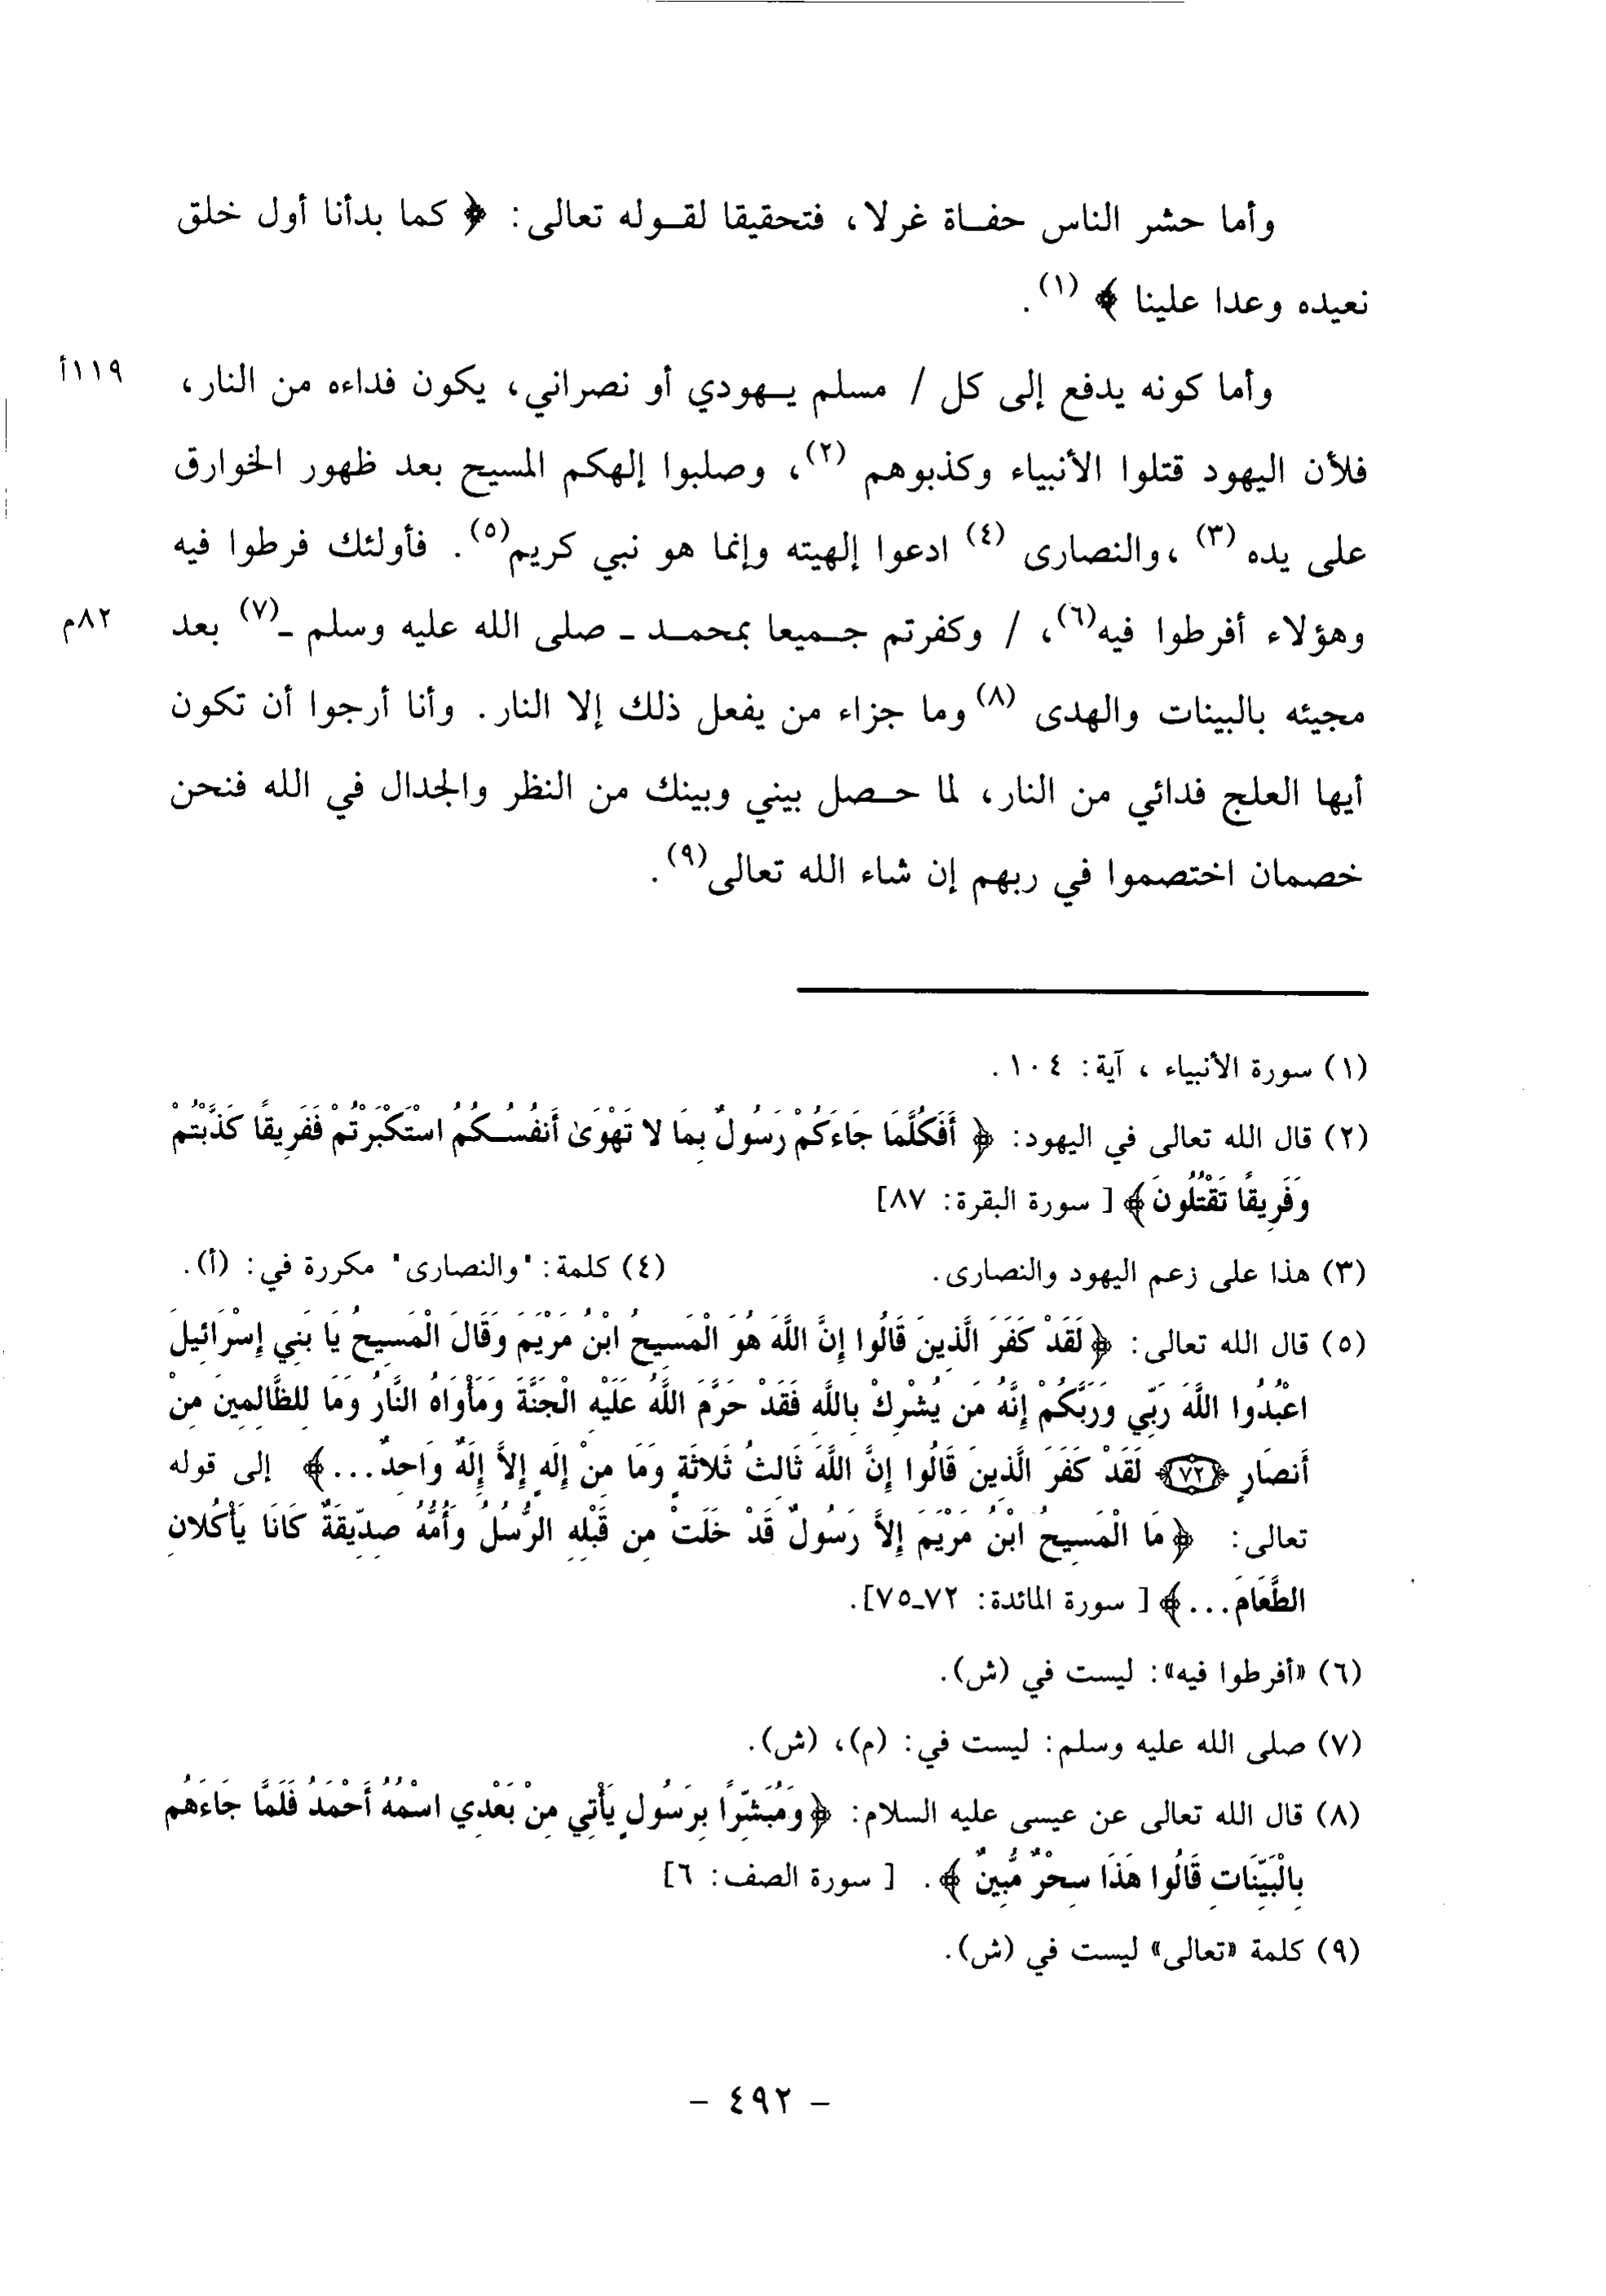 وأما حشر الناس حفاة غرلا، فتحقيقا لقوله تعالى: ﴿ كما بدأنا أول خلق
نعيده وعدا علينا ﴾ (١).
وأما كونه يدفع إلى كل / مسلم يهودي أو نصراني، يكون فداءه من النار، ١١٩أ
فلأن اليهود قتلوا الأنبياء وكذبوهم (٢)، وصلبوا إلهكم المسيح بعد ظهور الخوارق
على يده (٣) ،والنصارى (٤) ادعوا إلهيته وإنما هو نبي كريم(٥). فأولئك فرطوا فيه
وهؤلاء أفرطوا فيه(٦)، / وكفرتم جميعا بمحمد ـ صلى الله عليه وسلم ـ(٧) بعد ٨٢م
مجيئه بالبينات والهدى (٨) وما جزاء من يفعل ذلك إلا النار. وأنا أرجوا أن تكون
أيها العلج فدائي من النار، لما حصل بيني وبينك من النظر والجدال في الله فنحن
خصمان اختصموا في ربهم إن شاء الله تعالى(٩).
(١) سورة الأنبياء ، آية: ١٠٤.
(٢) قال الله تعالى في اليهود: ﴿ أَفَكُلَّمَا جَاءَكُمْ رَسُولٌ بِمَا لا تَهْوَىٰ أَنفُسُكُمُ اسْتَكْبَرْتُمْ فَفَرِيقًا كَذَّبْتُمْ
وَفَرِيقًا تَقْتُلُونَ ﴾ [ سورة البقرة: ٨٧]
(٣) هذا على زعم اليهود والنصارى. (٤) كلمة: "والنصارى" مكررة في: (أ).
(٥) قال الله تعالى: ﴿ لَقَدْ كَفَرَ الَّذِينَ قَالُوا إِنَّ اللَّهَ هُوَ الْمَسِيحُ ابْنُ مَرْيَمَ وَقَالَ الْمَسِيحُ يَا بَنِي إِسْرَائِيلَ
اعْبُدُوا اللَّهَ رَبِّي وَرَبَّكُمْ إِنَّهُ مَن يُشْرِكْ بِاللَّهِ فَقَدْ حَرَّمَ اللَّهُ عَلَيْهِ الْجَنَّةَ وَمَأْوَاهُ النَّارُ وَمَا لِلظَّالِمِينَ مِنْ
أَنصَارٍ ﴿٧٢﴾ لَقَدْ كَفَرَ الَّذِينَ قَالُوا إِنَّ اللَّهَ ثَالِثُ ثَلاثَةٍ وَمَا مِنْ إِلَهٍ إِلاَّ إِلَهٌ وَاحِدٌ... ﴾ إلى قوله
تعالى: ﴿ مَا الْمَسِيحُ ابْنُ مَرْيَمَ إِلاَّ رَسُولٌ قَدْ خَلَتْ مِن قَبْلِهِ الرُّسُلُ وَأُمُّهُ صِدِّيقَةٌ كَانَا يَأْكُلانِ
الطَّعَامَ... ﴾ [ سورة المائدة: ٧٢ـ٧٥].
(٦) «أفرطوا فيه»: ليست في (ش).
(٧) صلى الله عليه وسلم: ليست في: (م)، (ش).
(٨) قال الله تعالى عن عيسى عليه السلام: ﴿ وَمُبَشِّرًا بِرَسُولٍ يَأْتِي مِنْ بَعْدِي اسْمُهُ أَحْمَدُ فَلَمَّا جَاءَهُم
بِالْبَيِّنَاتِ قَالُوا هَذَا سِحْرٌ مُّبِينٌ ﴾. [ سورة الصف: ٦]
(٩) كلمة «تعالى» ليست في (ش).
- ٤٩٢ -